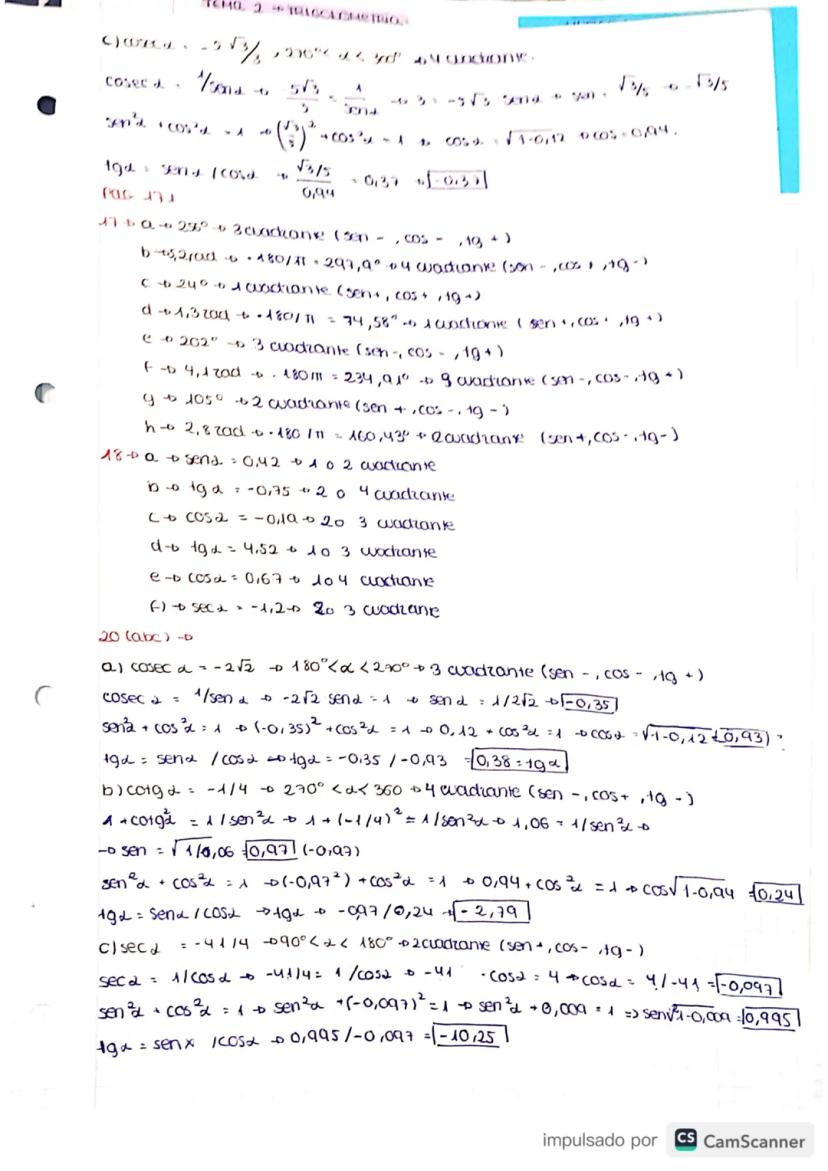 TEMA 2 → TRIGONOMETRIA.
c) cosec α = -5√3/3 , 270° < α < 360° → 4 cuadrante.
cosec α = 1/sen α → 5√3/3 = 1/sen α → 3 = -5√3 sen α → sen = √3/5 → -√3/5
sen²α + cos²α = 1 → (√3/5)² + cos²α = 1 → cos α = √1-0,12 → cos = 0,94.
tg α = sen α / cos α → √3/5 / 0,94 = 0,37 → -0,37
PAG 171
17 → a → 256° → 3 cuadrante (sen - , cos - , tg +)
b → 5,2 rad → · 180/π = 297,9° → 4 cuadrante (sen - , cos + , tg -)
c → 24° → 1 cuadrante (sen+, cos+ , tg+)
d → 1,3 rad → · 180/π = 74,58° → 1 cuadrante (sen+, cos+ , tg+)
e → 202° → 3 cuadrante (sen-, cos- , tg+)
f → 4,1 rad → · 180/π = 234,91° → 3 cuadrante (sen-, cos-, tg+)
g → 105° → 2 cuadrante (sen + , cos-, tg -)
h → 2,8 rad → · 180/π = 160,43° → 2 cuadrante (sen+, cos-, tg-)
18 → a → sen α = 0,42 → 1 o 2 cuadrante
b → tg α = -0,75 → 2 o 4 cuadrante
c → cos α = -0,19 → 2 o 3 cuadrante
d → tg α = 4,52 → 1 o 3 cuadrante
e → cos α = 0,67 → 1 o 4 cuadrante
f) → sec α = -1,2 → 2 o 3 cuadrante
20 (abc) →
a) cosec α = -2√2 → 180° < α < 270° → 3 cuadrante (sen - , cos - , tg +)
cosec α = 1/sen α → -2√2 sen α = 1 → sen α = 1/2√2 → -0,35
sen²α + cos²α = 1 → (-0,35)² + cos²α = 1 → 0,12 + cos²α = 1 → cos α = √1-0,12 (-0,93) .
tg α = sen α / cos α → tg α = -0,35 / -0,93 = 0,38 = tg α
b) cotg α = -1/4 → 270° < α < 360 → 4 cuadrante (sen - , cos+ , tg -)
1 + cotg²α = 1 / sen²α → 1 + (-1/4)² = 1/sen²α → 1,06 = 1/sen²α →
→ sen = √1/1,06 = 0,97 (-0,97)
sen²α + cos²α = 1 → (-0,97²) + cos²α = 1 → 0,94 + cos²α = 1 → cos √1-0,94 = 0,24
tg α = sen α / cos α → tg α → -0,97 / 0,24 → -2,79
c) sec α = -41/4 → 90° < α < 180° → 2 cuadrante (sen+ , cos- , tg-)
sec α = 1/cos α → -41/4 = 1/cos α → -41 · cos α = 4 → cos α = 4/-41 = -0,097
sen²α + cos²α = 1 → sen²α + (-0,097)² = 1 → sen²α + 0,009 = 1 => sen √1-0,009 = 0,995
tg α = sen x / cos α → 0,995 / -0,097 = -10,25
impulsado por CS CamScanner